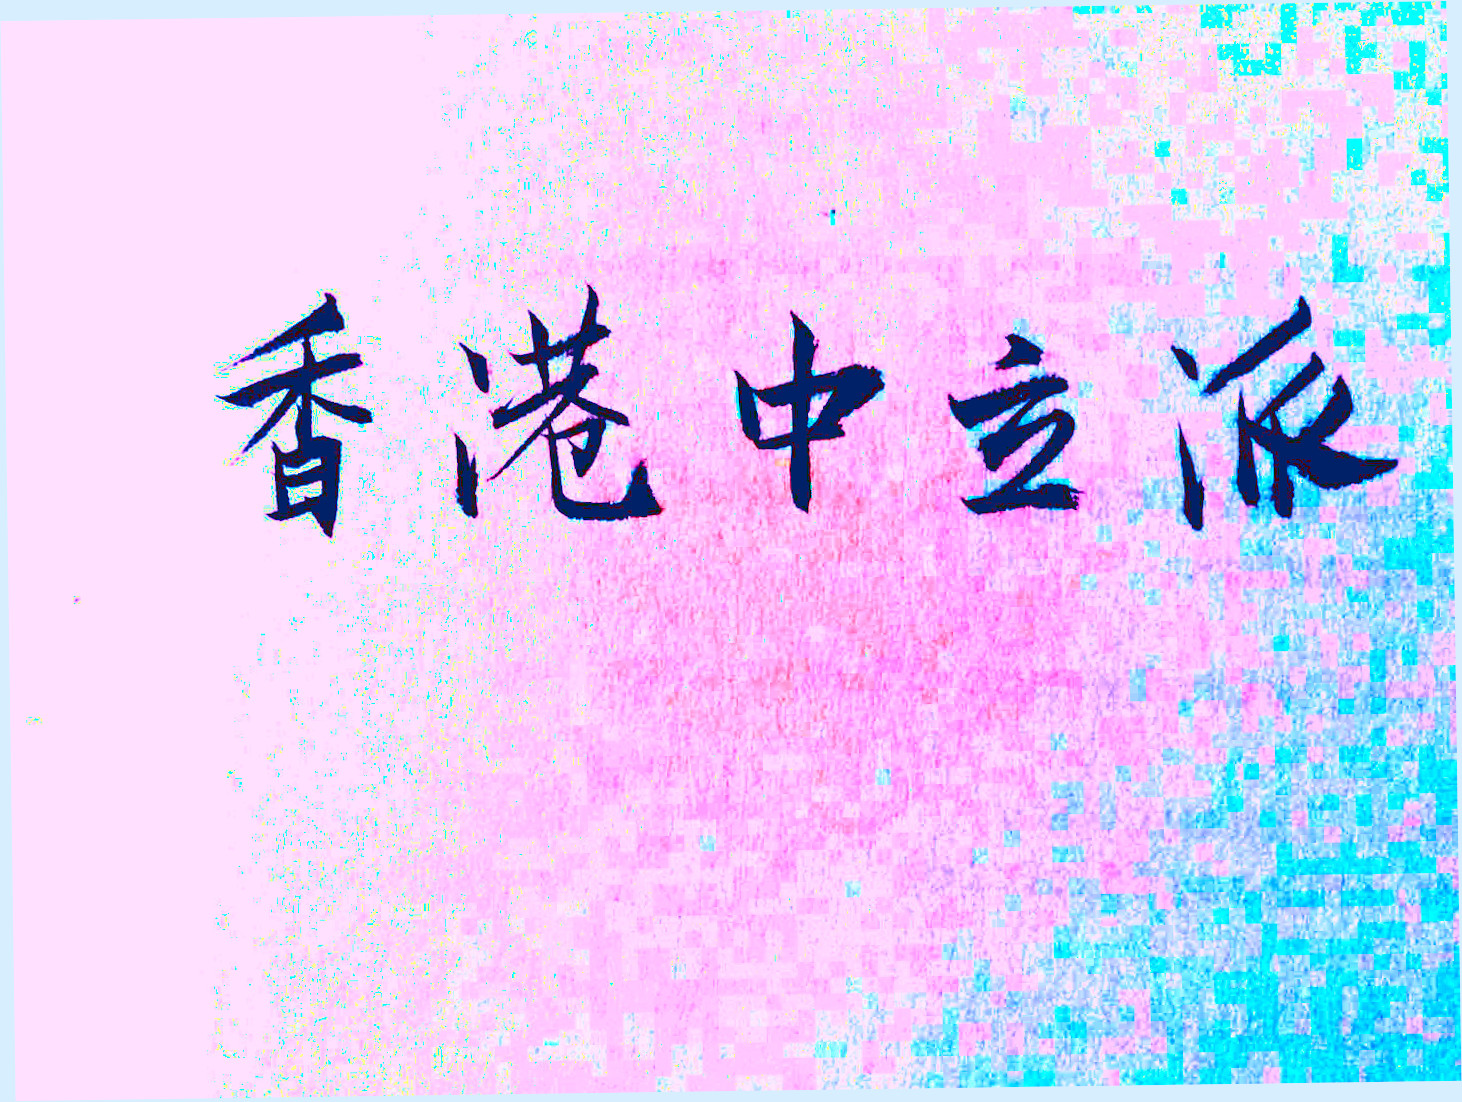 香港中立派